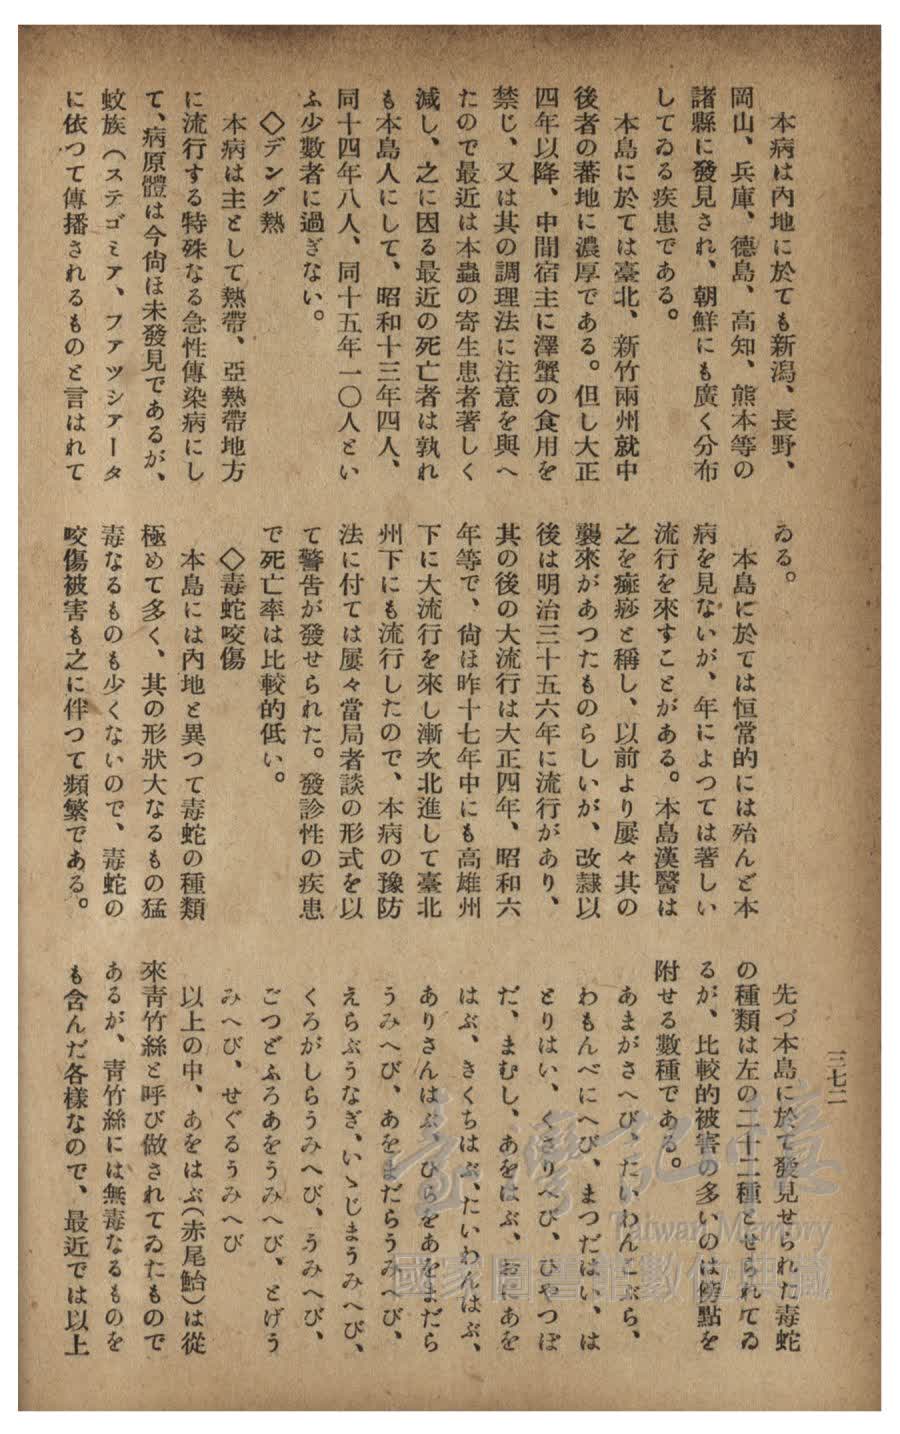 三七二
本病は內地に於ても新潟、長野、
岡山、兵庫、德島、高知、熊本等の
諸縣に發見され、朝鮮にも廣く分布
してゐる疾患である。
本島に於ては臺北、新竹兩州就中
後者の蕃地に濃厚である。但し大正
四年以降、中間宿主に澤蟹の食用を
禁じ、又は其の調理法に注意を與へ
たので最近は本蟲の寄生患者著しく
減し、之に因る最近の死亡者は孰れ
も本島人にして、昭和十三年四人、
同十四年八人、同十五年一〇人とい
ふ少數者に過ぎない。
◇デング熱
本病は主として熱帶、亞熱帶地方
に流行する特殊なる急性傳染病にし
て、病原體は今尙ほ未發見であるが、
蚊族（ステゴミア、フアツシアータ
に依つて傳播されるものと言はれて
ゐる。
本島に於ては恒常的には殆んど本
病を見ないが、年によつては著しい
流行を來すことがある。本島漢醫は
之を痲痧と稱し、以前より屢々其の
襲來があつたものらしいが、改隷以
後は明治三十五六年に流行があり、
其の後の大流行は大正四年、昭和六
年等で、尙ほ昨十七年中にも高雄州
下に大流行を來し漸次北進して臺北
州下にも流行したので、本病の豫防
法に付ては屢々當局者談の形式を以
て警告が發せられた。發診性の疾患
で死亡率は比較的低い。
◇毒蛇咬傷
本島には內地と異つて毒蛇の種類
極めて多く、其の形狀大なるもの猛
毒なるものも少くないので、毒蛇の
咬傷被害も之に伴つて頻繁である。
先づ本島に於て發見せられた毒蛇
の種類は左の二十二種とせられてゐ
るが、比較的被害の多いのは傍點を
附せる數種である。
あまがさへび、たいわんこぶら、
わもんべにへび、まつだはい、は
とりはい、くさりへび、ひやつぽ
だ、まむし、あをはぶ、おにあを
はぶ、きくちはぶ、たいわんはぶ、
ありさんはぶ、ひらをあをまだら
うみへび、あをまだらうみへび、
えらぶうなぎ、いゝじまうみへび、
くろがしらうみへび、うみへび、
ごつどふろあをうみへび、とげう
みへび、せぐるうみへび
以上の中、あをはぶ（赤尾鮐）は從
來靑竹絲と呼び做されてゐたもので
あるが、靑竹絲には無毒なるものを
も含んだ各樣なので、最近では以上
臺灣記憶
Taiwan Memory
國家圖書館數位典藏